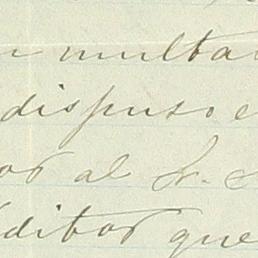 n multa
dispuso e
or al Sr. S
ditor que